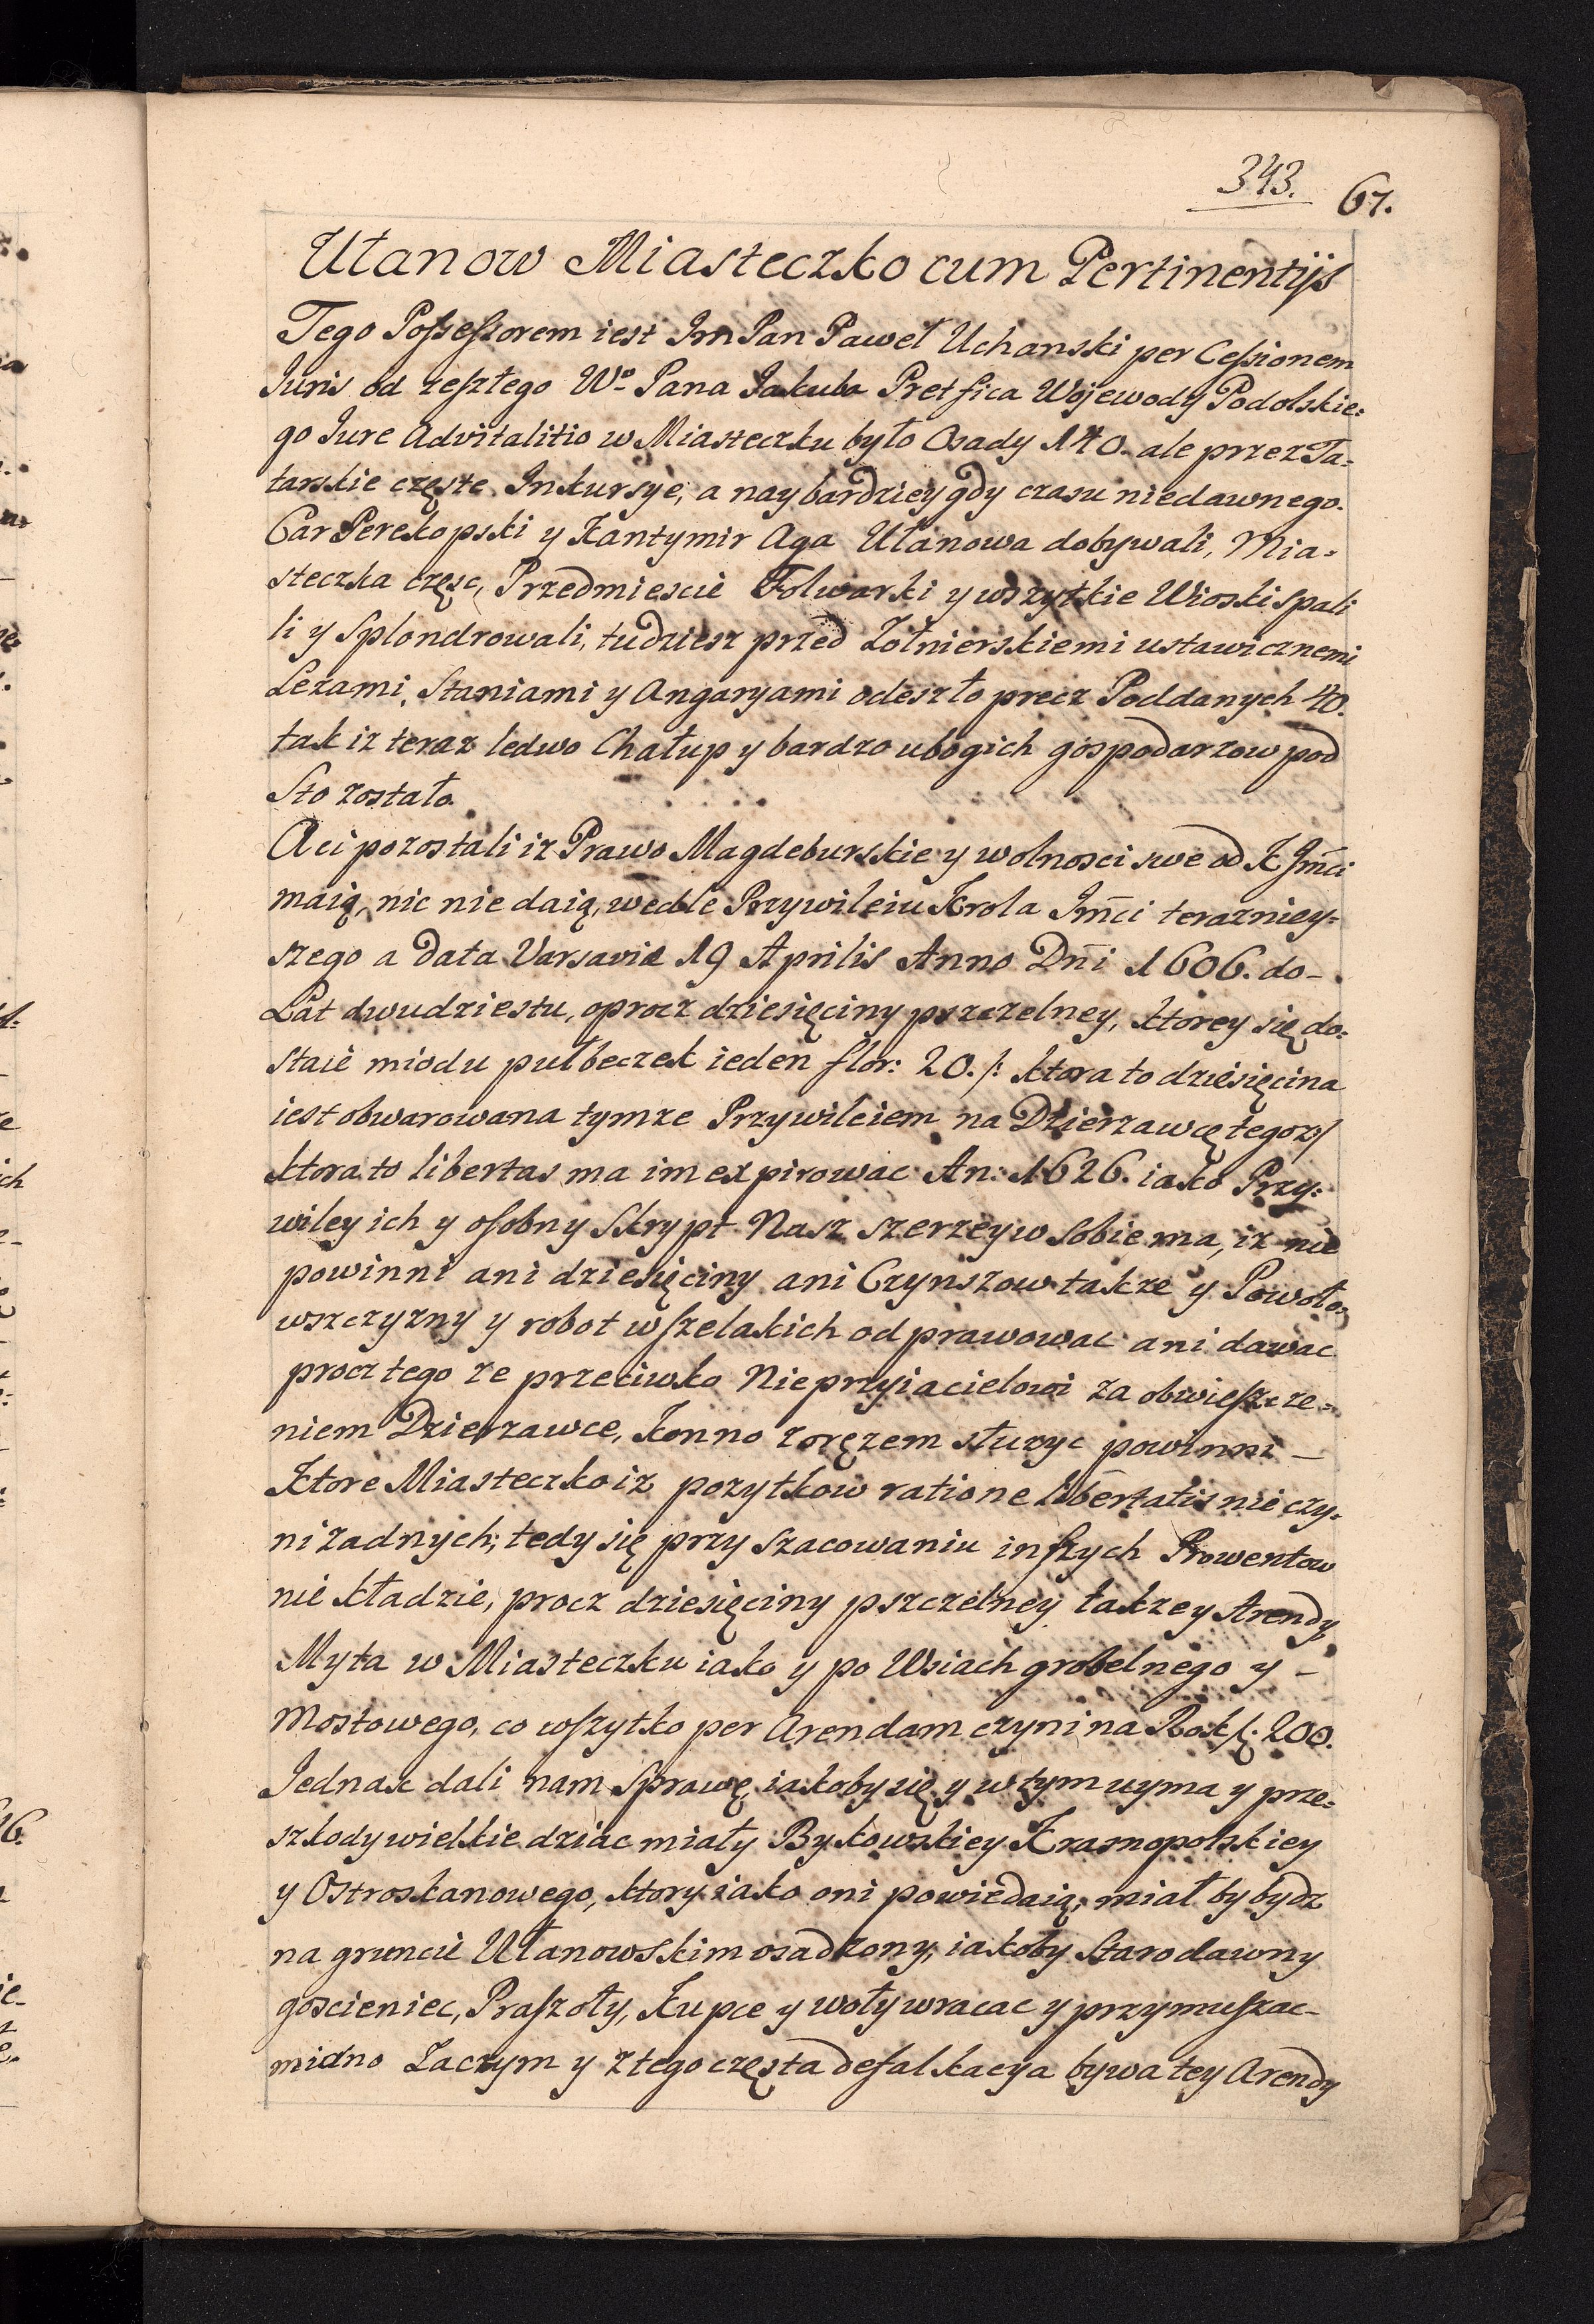 343. 67.
Ułanow Miasteczko cum Pertinentijs
Tego Poſseſsorem iest Jm Pan Paweł Uchanski per Ceſsionem
Juris od zeſzłego Wo Pana Jakuba Pretfica Wojewody Podolskie:
go Jure Advitalitio w Miasteczku było Osady 140. ale przez Ta:
tarskie częste Inkursye, a naybardziey gdy czasu niedawnego.
Car Perekopski y Kantymir Aga Ułanowa dobywali, Mia=
steczka częsc, Przedmiescie Folwarki y wszytkie Wioski spali
li y Splondrowali, tudziesz przed Zołnierskiemi ustawicznemi
Lezami, Staniami y Angaryami odeszło precz Poddanych 40.
tak iz teraz ledwo Chałup y bardzo ubogich gospodarzow pod
Sto zostało.
A ci pozostali iz Prawo Magdeburskie y wolnosci swe od K Jmci
maią, nic nie daią, wedle Przywileiu Krola Jmci terazniey=
szego a data Varsavie 19 Aprilis Anno Dni 1606. do-
Lat dwudziestu, oprocz dziesięciny pszczelney, ktorey się do:
staie miodu pułbeczek ieden flor: 20. /: ktora to dziesięcina
iest obwarowana tymze Przywileiem na Dzierzawcę tegoz:/
ktora to libertas ma im expirowac An: 1626. iako Przy:
wiley ich y osobny Skrypt Nasz szerzey w sobie ma, iz nie
powinni ani dziesięciny ani Czynszow takze y Powoło=
wszczyzny y robot wſzelakich odprawowac ani dawac
procz tego ze przeciwko Nieprzyiacielowi za obwieſzcze=
niem Dzierzawce, konno zoręzem słuzyc powinni —
Ktore Miasteczko iz pozytkow ratione libertatis nie czy=
ni zadnych; tedy się przy szacowaniu inſzych Prowentow
nie kładzie, procz dziesięciny pszczelney takze y Arendy
Myta w Miasteczku iako y po Wsiach grobelnego y —
Mostowego, co wſzytko per Arendam czyni na Rok f. 200.
Jednak dali nam Sprawę, iakoby się y w tym uyma y prze=
szkody wielkie dziac miały Bykowskiey Krasnopolskiey
y Ostroskanowego, ktory iako oni powiedaią, miał by bydz
na gruncie Ułanowskim osadzony, iakoby Starodawny
goscieniec, Praſzoły, Kupce y woły wracac y przymuſzac
miano Zaczym y z tego częsta defalkacya bywa tey Arendy